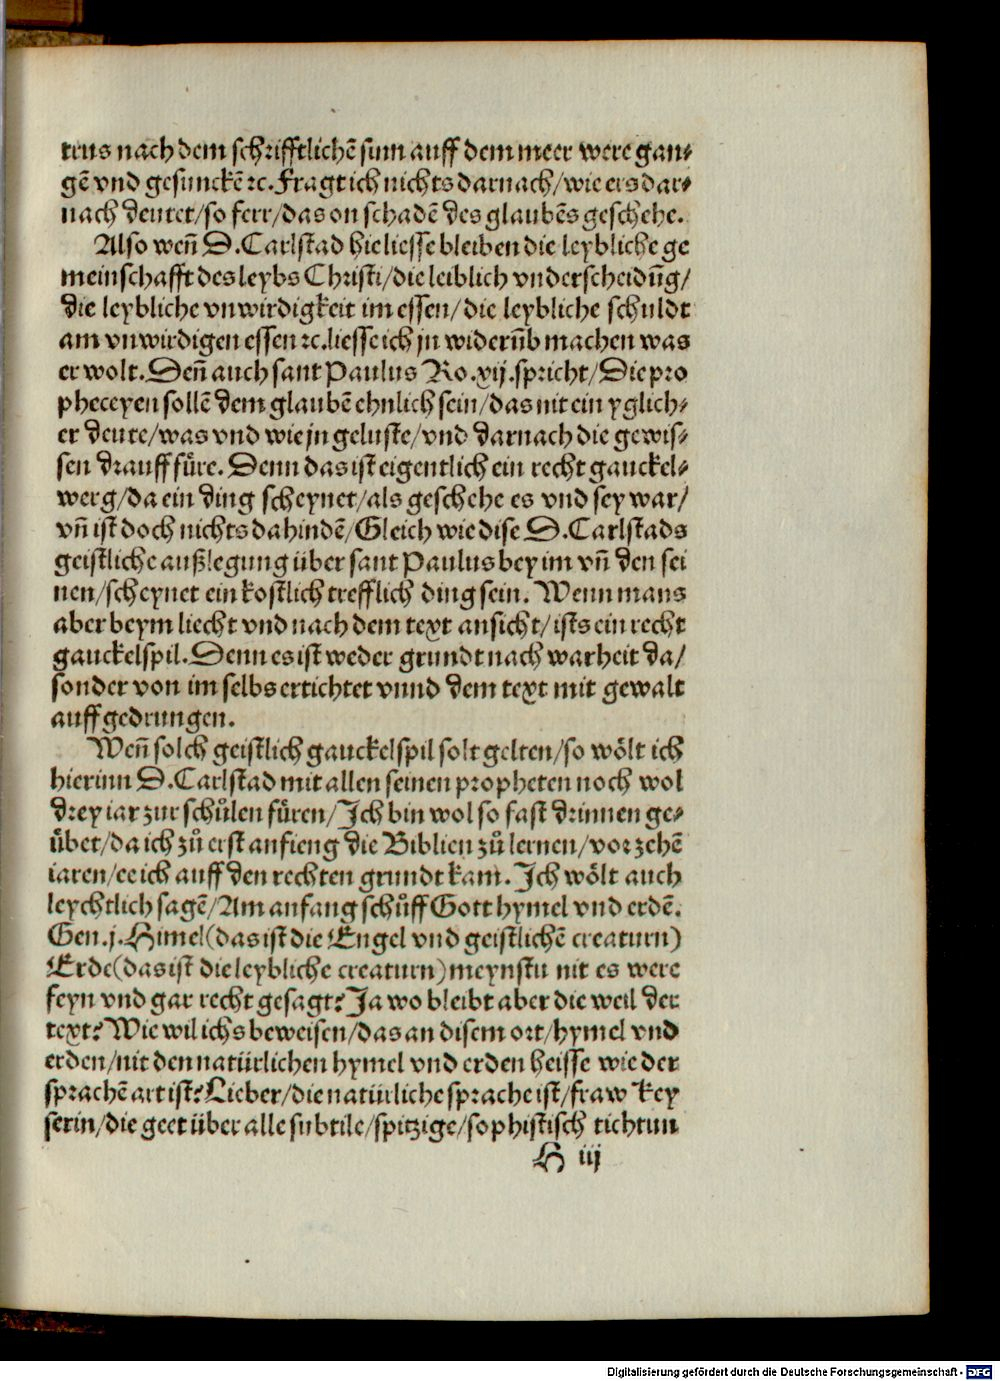 trus nach dem schrifftlichē sinn auff dem meer were gan⸗
gē vnd gesunckē ꝛc. Fragt ich nichts darnach/ wie ers dar⸗
nach deutet/ so ferr/ das on schadē des glaubēs geschehe.
Also weñ D. Carlstad hie liesse bleiben die leybliche ge
meinschafft des leybs Christi/ die leiblich vnderscheidūg/
die leybliche vnwirdigkeit im essen/ die leybliche schuldt
am vnwirdigen essen ꝛc. liesse ich jn widerūb machen was
er wolt. Deñ auch sant Paulus Ro. xij. spricht/ Die pro
pheceyen sollē dem glaubē ehnlich sein/ das nit ein yglich⸗
er deute/ was vnd wie jn geluste/ vnd darnach die gewis⸗
sen drauff füre. Denn das ist eigentlich ein recht gauckel⸗
werg/ da ein ding scheynet/ als geschehe es vnd sey war/
vñ ist doch nichts dahindē/ Gleich wie dise D. Carlstads
geistliche außlegung über sant Paulus bey im vñ den sei
nen/ scheynet ein kostlich trefflich ding sein. Wenn mans
aber beym liecht vnd nach dem text ansicht/ ists ein recht
gauckelspil. Denn es ist weder grundt nach warheit da/
sonder von im selbs ertichtet vnnd dem text mit gewalt
auffgedrungen.
Weñ solch geistlich gauckelspil solt gelten/ so wölt ich
hierinn D. Carlstad mit allen seinen propheten noch wol
drey iar zur schůlen füren/ Ich bin wol so fast drinnen ge⸗
übet/ da ich zů erst anfieng die Biblien zů lernen/ vor zehē
iaren/ ee ich auff den rechten grundt kam. Ich wölt auch
leychtlich sagē/ Am anfang schůff Gott hymel vnd erdē.
Gen. j. Himel (das ist die Engel vnd geistlichē creaturn)
Erde (das ist die leybliche creaturn) meynstu nit es were
feyn vnd gar recht gesagt? Ja wo bleibt aber die weil der
text? Wie wil ichs beweisen/ das an disem ort/ hymel vnd
erden/ nit den natürlichen hymel vnd erden heisse wie der
sprachē art ist? Lieber/ die natürliche sprache ist/ fraw key
serin/ die geet über alle subtile/ spitzige/ sophistisch tichtun
H iij
Digitalisierung gefördert durch die Deutsche Forschungsgemeinschaft - DFG